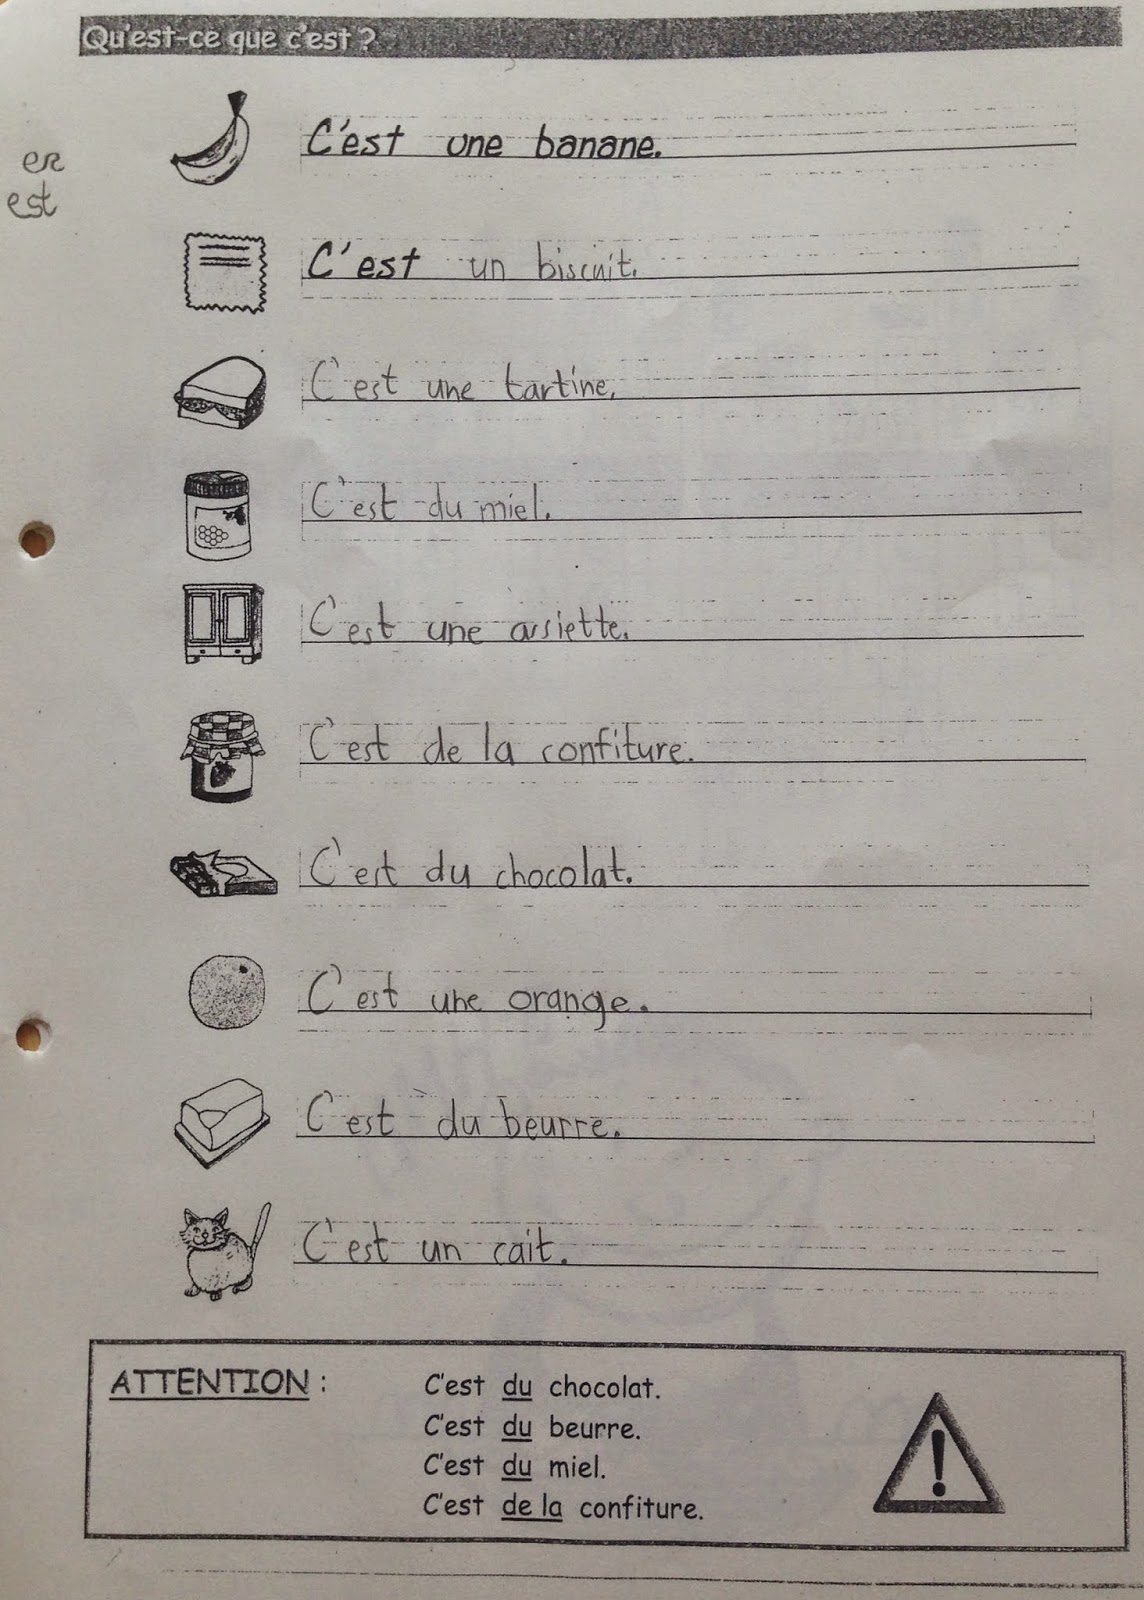 Qu'est-ce que c'est ?
C'est une banane.
er
est
C'est un biscuit.
C'est une tartine.
C'est du miel.
C'est une arsiette.
C'est de la confiture.
C'est du chocolat.
C'est une orange.
C'est du beurre.
C'est un cait.
ATTENTION :
C'est du chocolat.
C'est du beurre.
C'est du miel.
C'est de la confiture.